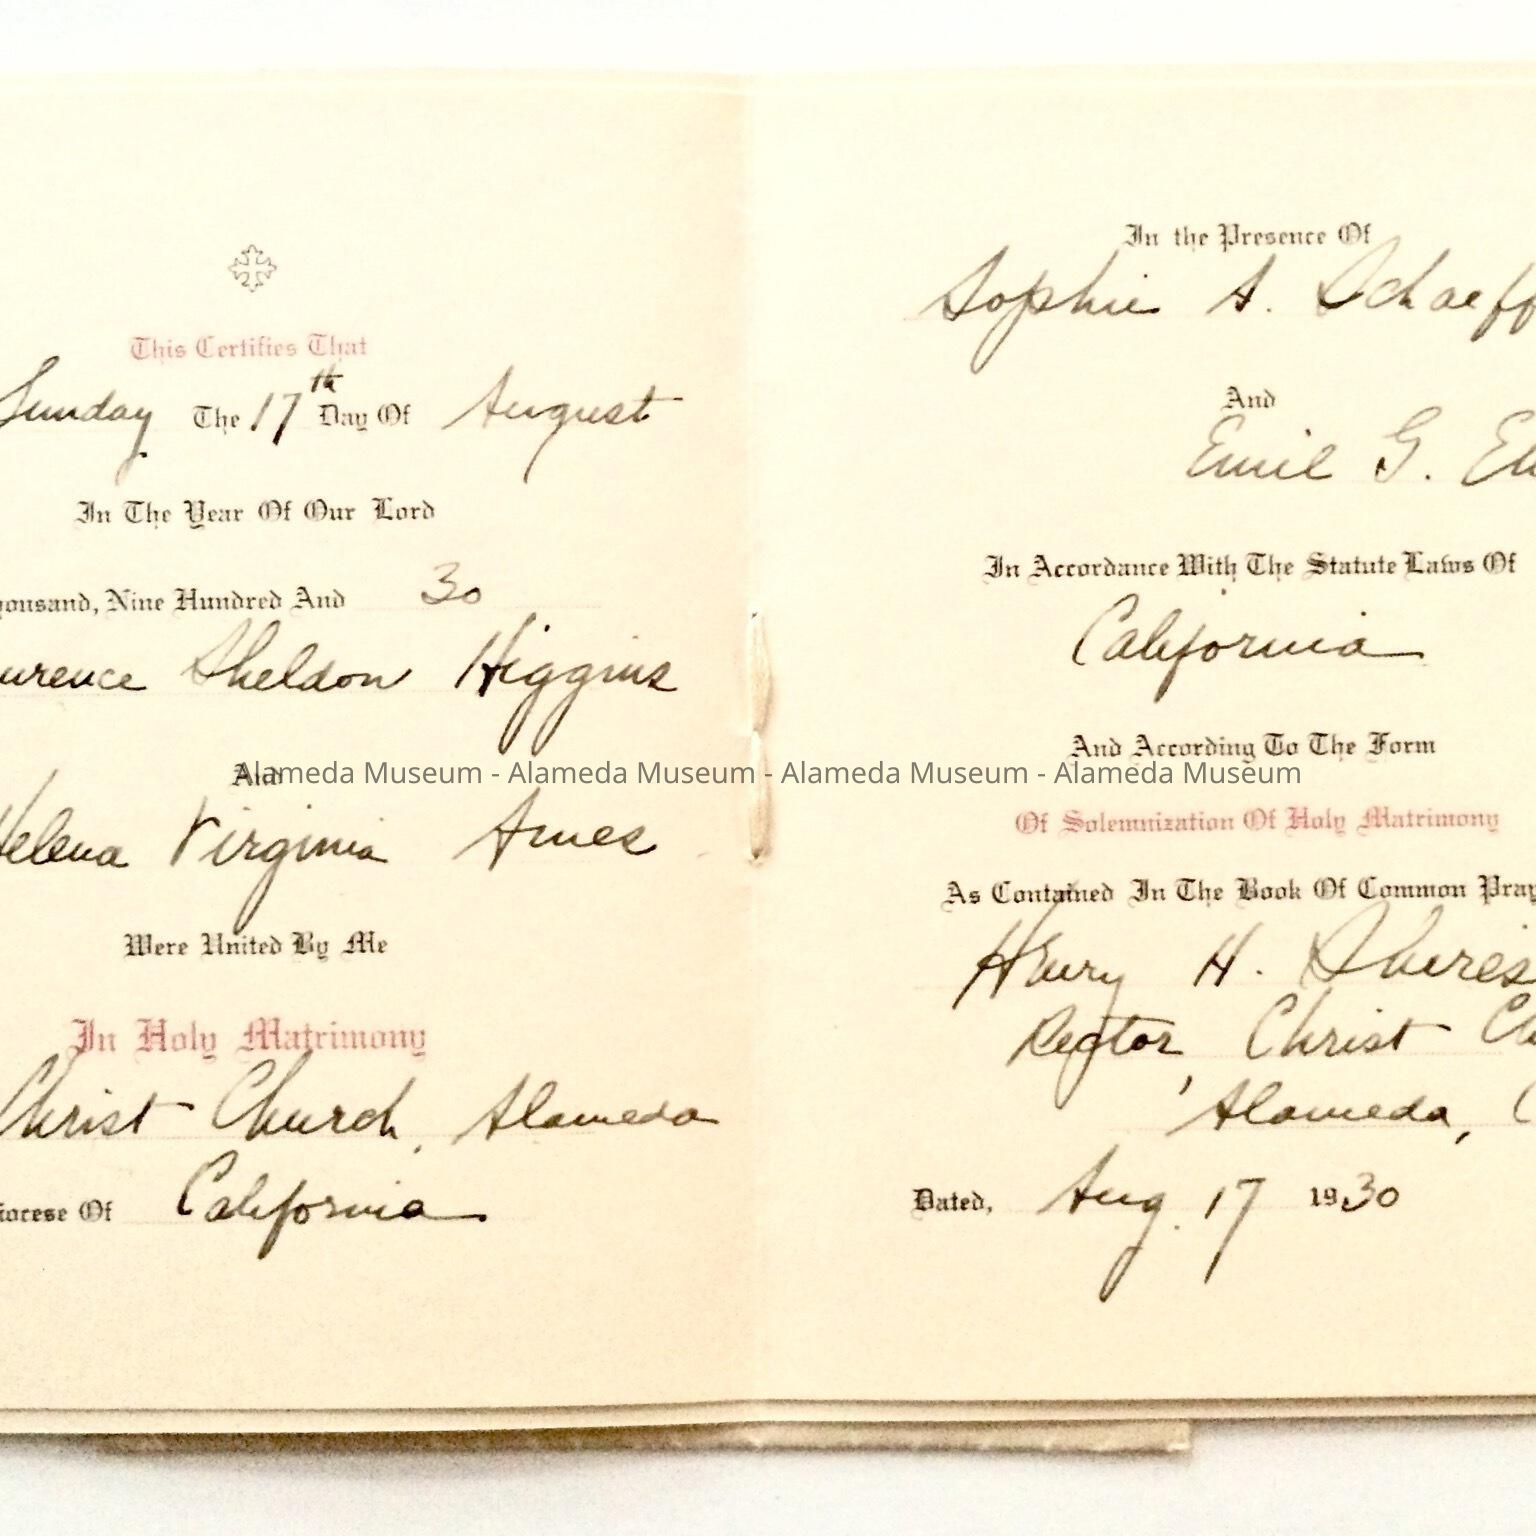 This Certifies That
Sunday The 17th Day Of August
In The Year Of Our Lord
housand, Nine Hundred And 30
urence Sheldon Higgins
And
Helena Virginia Ames
Were United By Me
In Holy Matrimony
Christ Church, Alameda
iocese Of California
In the Presence Of
Sophie A. Schaeff
And
Emil G.
In Accordance With The Statute Laws Of
California
And According To The Form
Of Solemnization Of Holy Matrimony
As Contained In The Book Of Common Pray
Henry H. Shires
Rector, Christ Ch
Alameda, C
Dated, Aug. 17 1930
Alameda Museum - Alameda Museum - Alameda Museum - Alameda Museum